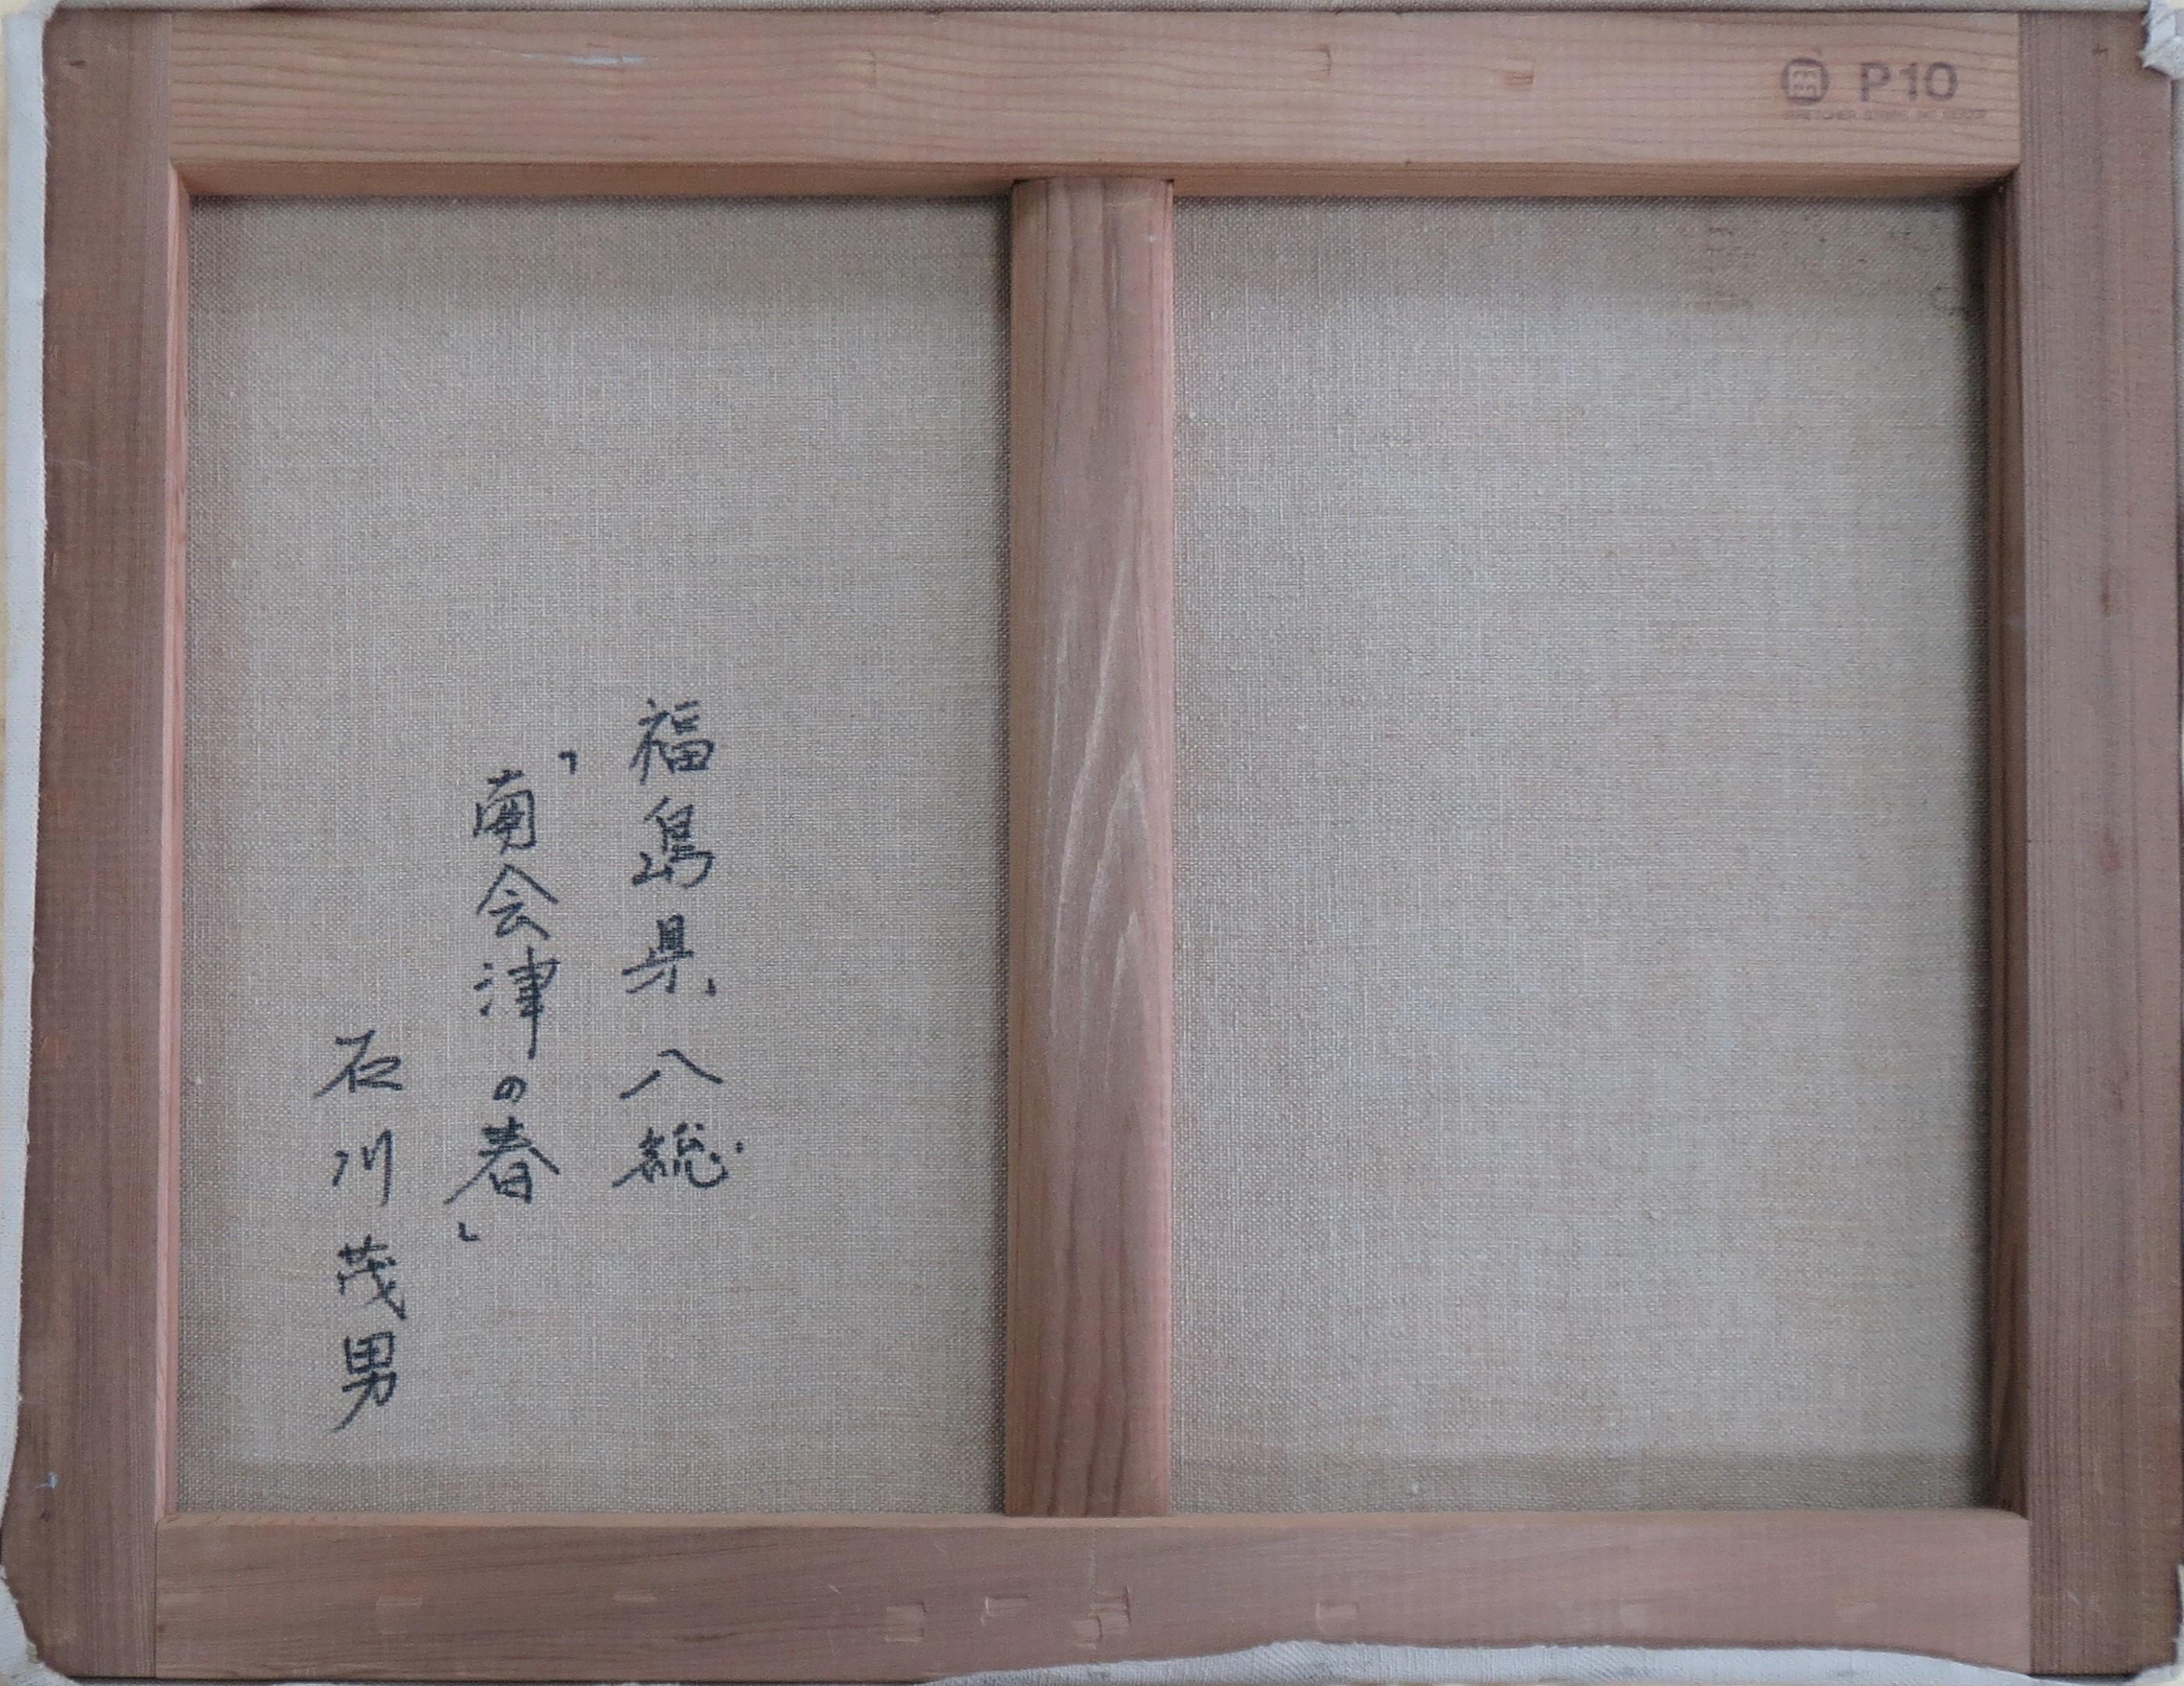 福島県、八総
「南会津の春」
石川茂男
P10